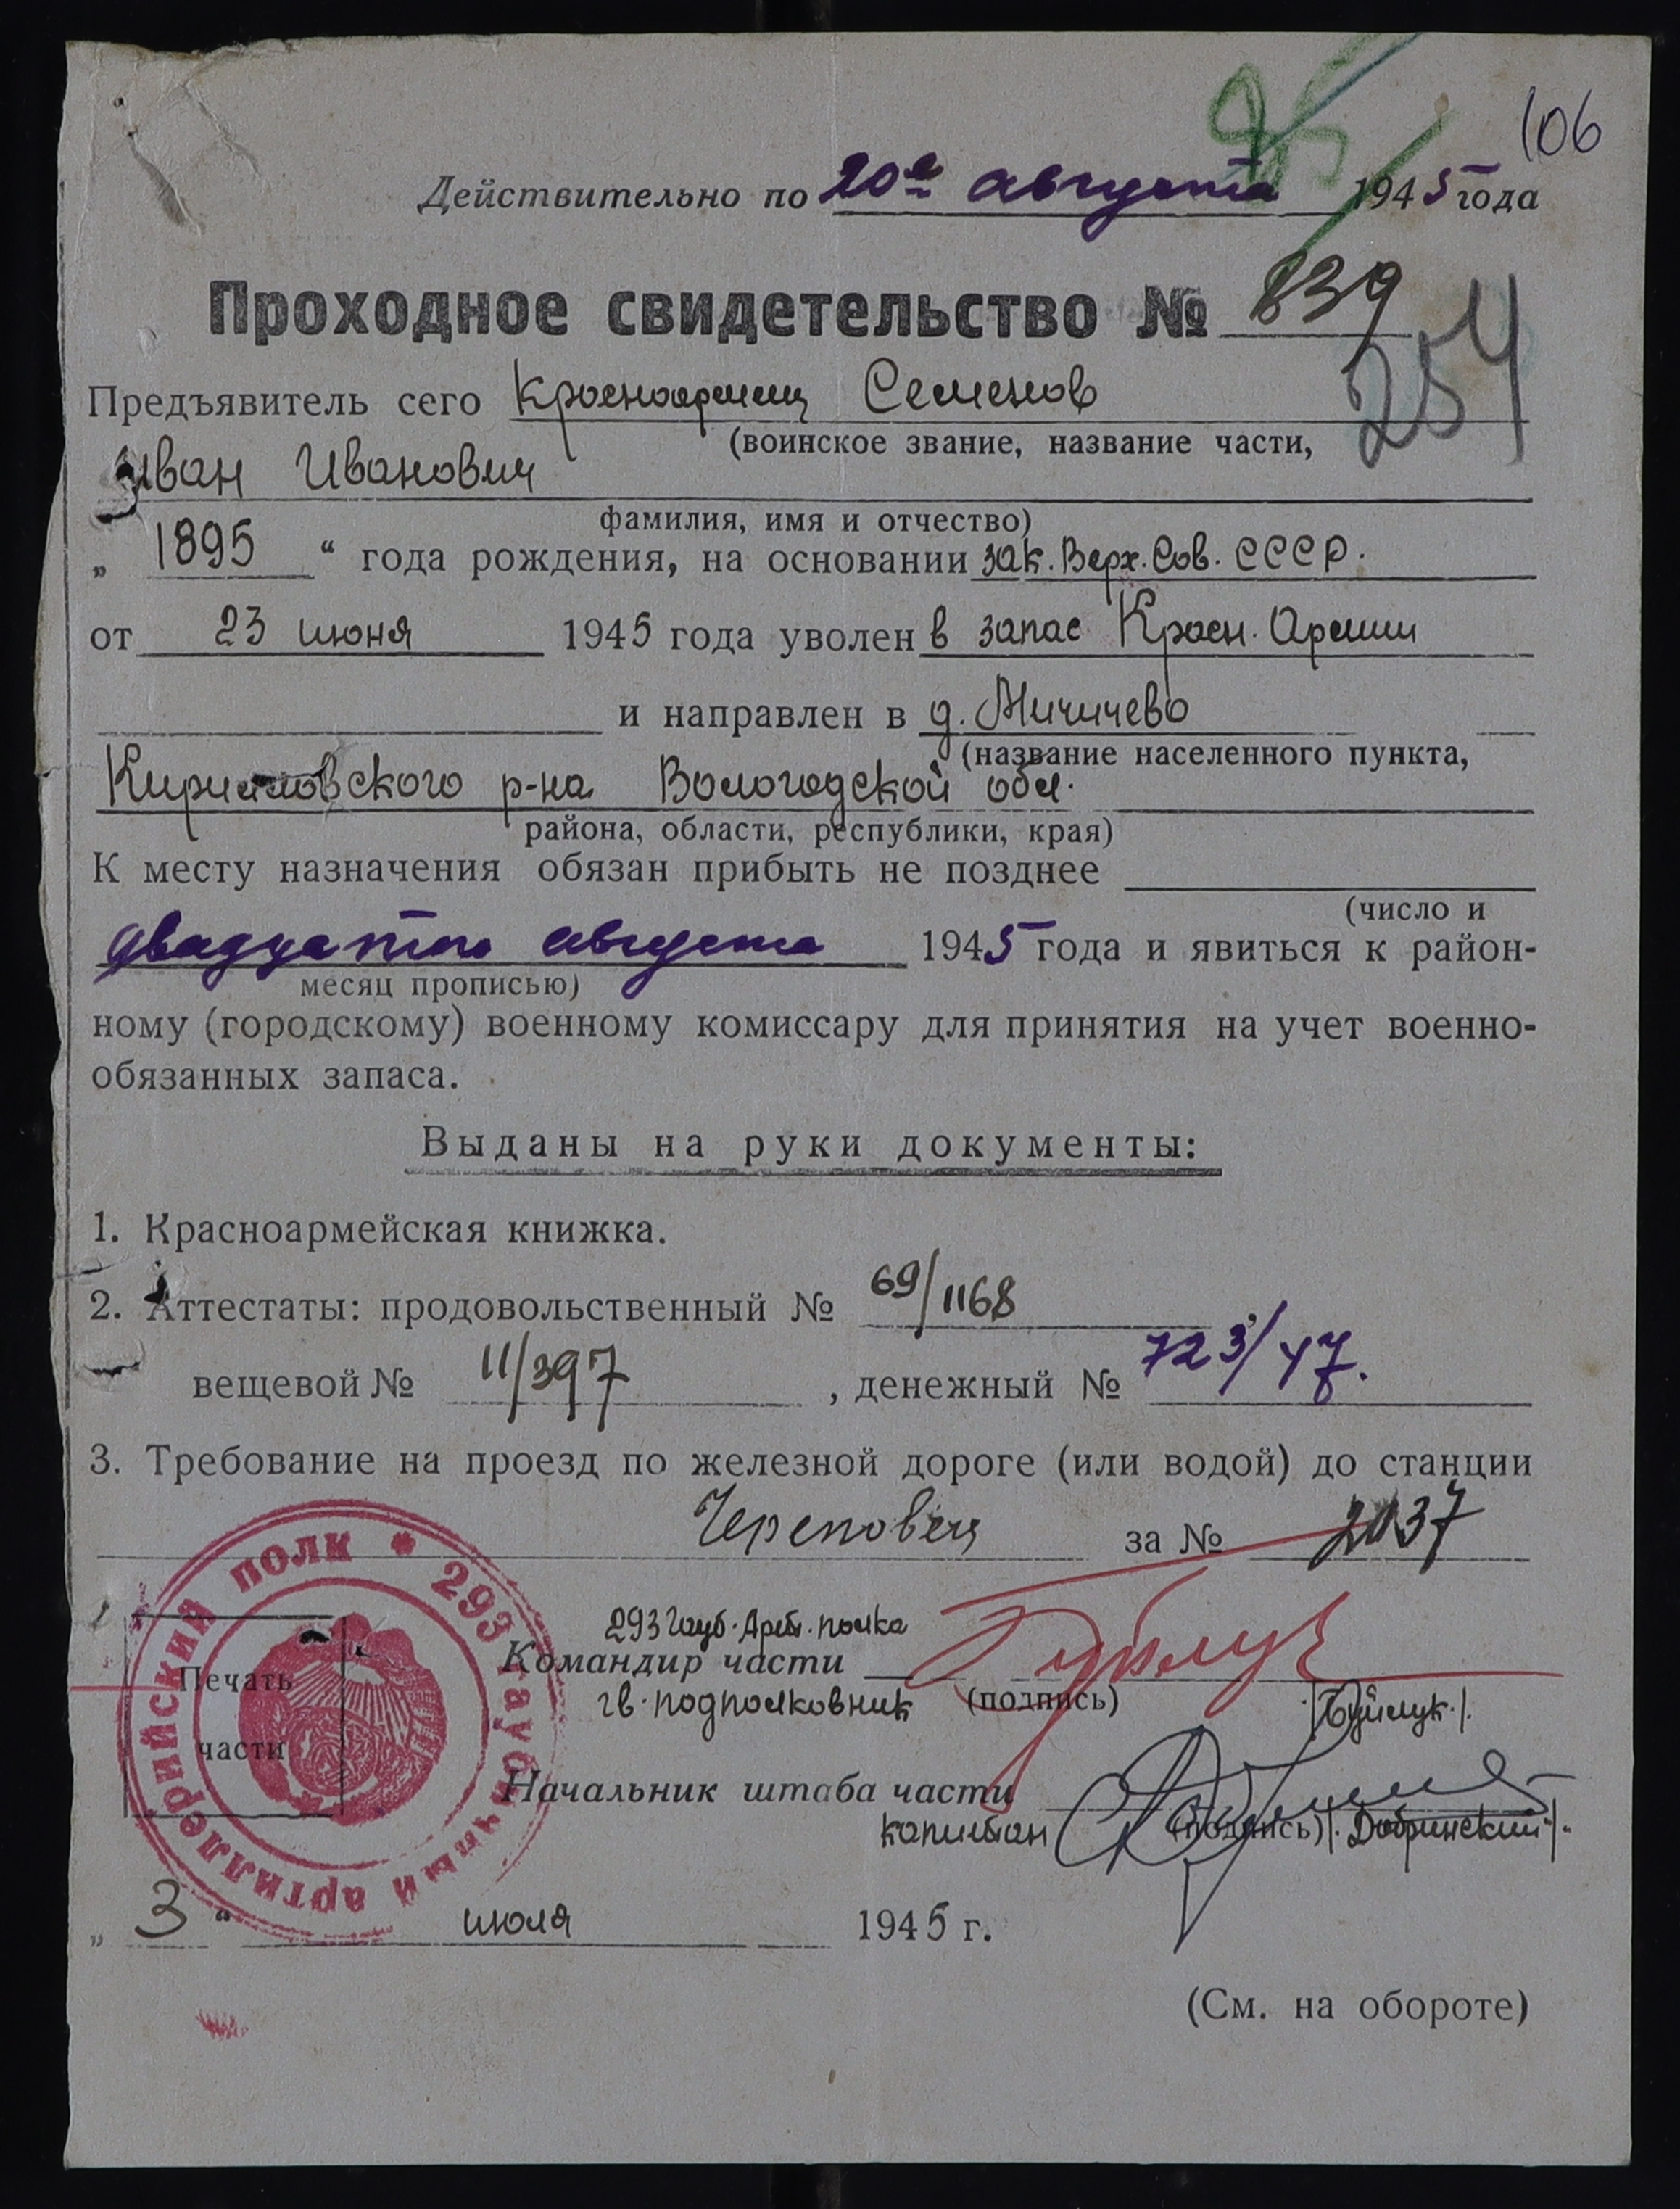 106
Действительно по 20е августа 1945 года
Проходное свидетельство № 839
254
Предъявитель сего Красноармеец Семенов
(воинское звание, название части,
Иван Иванович
фамилия, имя и отчество)
„ 1895 “ года рождения, на основании зак. Верх. Сов. СССР.
от 23 июня 1945 года уволен в запас Красн. Армии
и направлен в д.
(название населенного пункта,
Кирилловского р-на Вологодской обл.
района, области, республики, края)
К месту назначения обязан прибыть не позднее
(число и
двадцатого августа 1945 года и явиться к район-
месяц прописью)
ному (городскому) военному комиссару для принятия на учет военно-
обязанных запаса.
Выданы на руки документы:
1. Красноармейская книжка.
2. Аттестаты: продовольственный № 69/1168
вещевой № 11/397, денежный № 723/47.
3. Требование на проезд по железной дороге (или водой) до станции
Череповец за № 2037
293 гаубичный артиллерийский полк
Печать
части
293 Гауб. Арт. полка
Командир части
гв. подполковник (подпись) /Буйлук./
Начальник штаба части
капитан (подпись) /Добринский/.
„ 3 “ июля 1945 г.
(См. на обороте)